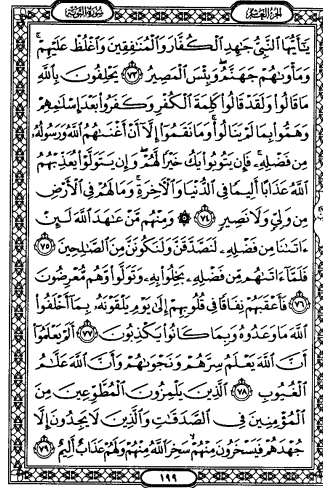 الجزء العاشر
سورة التوبة
يَـٰٓأَيُّهَا ٱلنَّبِىُّ جَـٰهِدِ ٱلۡكُفَّارَ وَٱلۡمُنَـٰفِقِينَ وَٱغۡلُظۡ عَلَيۡهِمۡۚ
وَمَأۡوَىٰهُمۡ جَهَنَّمُۖ وَبِئۡسَ ٱلۡمَصِيرُ ٧٣ يَحۡلِفُونَ بِٱللَّهِ
مَا قَالُواْ وَلَقَدۡ قَالُواْ كَلِمَةَ ٱلۡكُفۡرِ وَكَفَرُواْ بَعۡدَ إِسۡلَـٰمِهِمۡ
وَهَمُّواْ بِمَا لَمۡ يَنَالُواْۚ وَمَا نَقَمُوٓاْ إِلَّآ أَنۡ أَغۡنَىٰهُمُ ٱللَّهُ وَرَسُولُهُۥ
مِن فَضۡلِهِۦۚ فَإِن يَتُوبُواْ يَكُ خَيۡرٗا لَّهُمۡۖ وَإِن يَتَوَلَّوۡاْ يُعَذِّبۡهُمُ
ٱللَّهُ عَذَابًا أَلِيمٗا فِى ٱلدُّنۡيَا وَٱلۡأٓخِرَةِۚ وَمَا لَهُمۡ فِى ٱلۡأَرۡضِ
مِن وَلِىّٖ وَلَا نَصِيرٖ ٧٤ ۞ وَمِنۡهُم مَّنۡ عَـٰهَدَ ٱللَّهَ لَئِنۡ
ءَاتَىٰنَا مِن فَضۡلِهِۦ لَنَصَّدَّقَنَّ وَلَنَكُونَنَّ مِنَ ٱلصَّـٰلِحِينَ ٧٥
فَلَمَّآ ءَاتَىٰهُم مِّن فَضۡلِهِۦ بَخِلُواْ بِهِۦ وَتَوَلَّواْ وَّهُم مُّعۡرِضُونَ
٧٦ فَأَعۡقَبَهُمۡ نِفَاقٗا فِى قُلُوبِهِمۡ إِلَىٰ يَوۡمِ يَلۡقَوۡنَهُۥ بِمَآ أَخۡلَفُواْ
ٱللَّهَ مَا وَعَدُوهُ وَبِمَا كَانُواْ يَكۡذِبُونَ ٧٧ أَلَمۡ يَعۡلَمُوٓاْ
أَنَّ ٱللَّهَ يَعۡلَمُ سِرَّهُمۡ وَنَجۡوَىٰهُمۡ وَأَنَّ ٱللَّهَ عَلَّـٰمُ
ٱلۡغُيُوبِ ٧٨ ٱلَّذِينَ يَلۡمِزُونَ ٱلۡمُطَّوِّعِينَ مِنَ
ٱلۡمُؤۡمِنِينَ فِى ٱلصَّدَقَـٰتِ وَٱلَّذِينَ لَا يَجِدُونَ إِلَّا
جُهۡدَهُمۡ فَيَسۡخَرُونَ مِنۡهُمۡ سَخِرَ ٱللَّهُ مِنۡهُمۡ وَلَهُمۡ عَذَابٌ أَلِيمٌ ٧٩
١٩٩